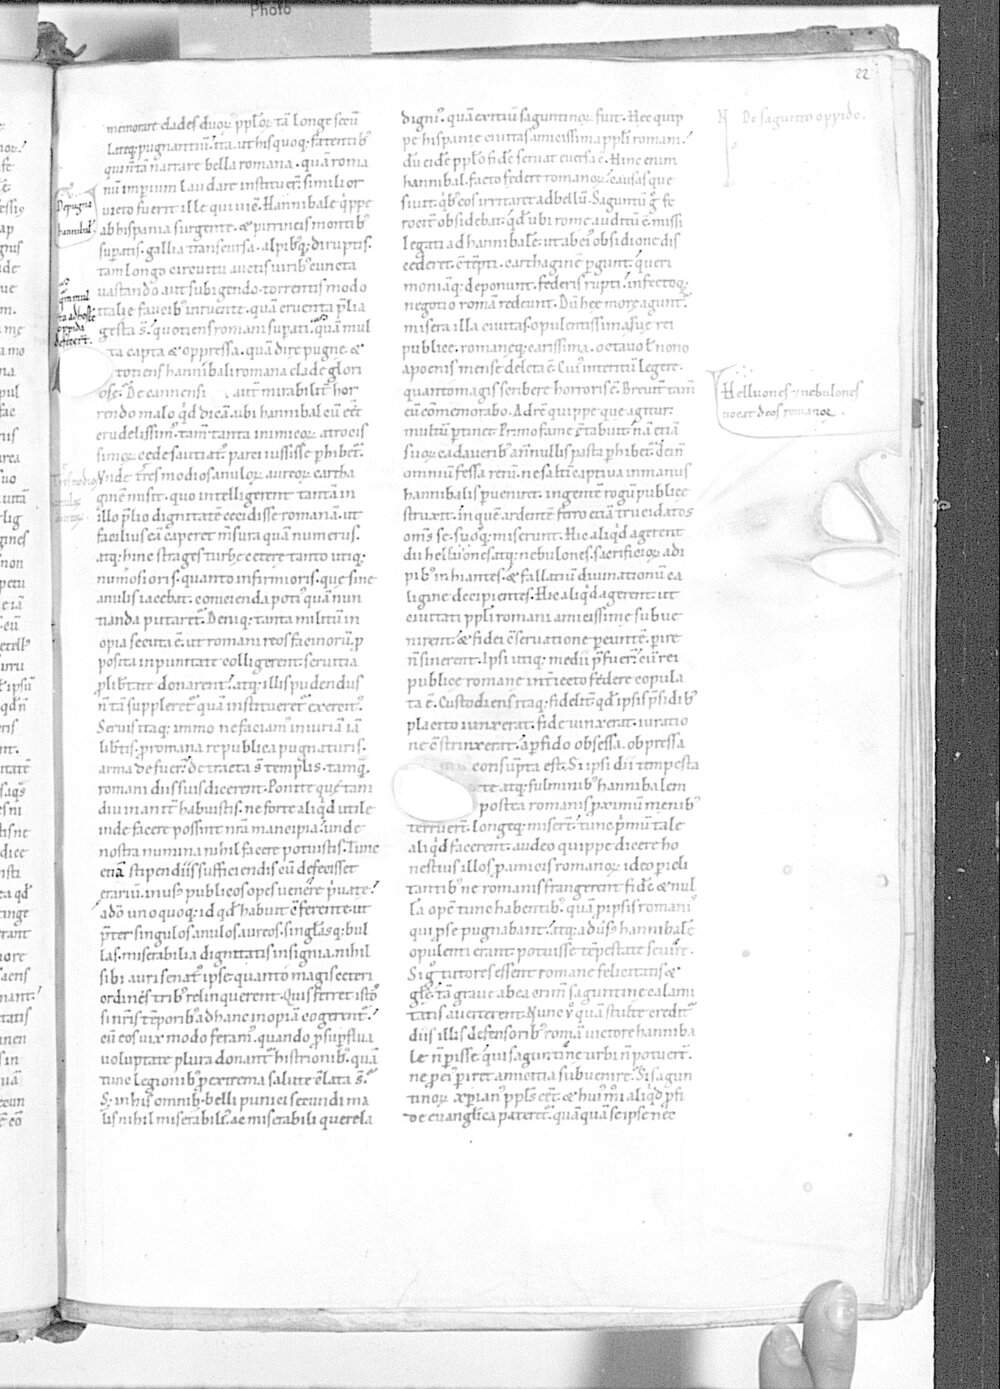 Photo
22
memorare clades duoꝝ ppl̄oꝝ tā longe secū
lateq; pugnantiū. ita ut his quoq; fatentib;
qui n̄ tā narrare bella romana. quā roma
nū imperium laudare instituer̄t similior
uicto fuerit ille qui uic̄. Hannibale q̄ppe
ab hispania surgente. & pirineis montib;
supatis. gallia transcursa. alpib;q; diruptis.
tam longo circuitu auctis uirib; cuncta
uastando aut subigendo. torrentis modo
italie faucib; inruente. quā cruenta p̄lia
gesta s̄. quotiens romani supati. quā mul
ta capta & oppressa. quā dire pugne. &
totiens hannibali romana clade glori
ose. De cannensi aut̄ mirabilit̄ hor
rendo malo qd̄ dicā. ubi hannibal cū eet̄
crudelissim;. tam̄ tanta inimicoꝝ atrocis
simoꝝ cede satiat;. parci iussisse phibet̄.
Vnde tres modios anuloꝝ aureoꝝ cartha
ginē misit. quo intelligerent tantā in
illo p̄lio dignitatē cecidisse romanā. ut
facilius eā caperet m̄sura quā numerus.
atq; hinc strages turbe cetere tanto utiq;
num̄osioris. quanto infirmioris. que sine
anulis iacebat. conicienda poti; quā nun
tianda putaret̄. Deniq; tanta militū in
opia secuta ē. ut romani reos facinorū p
posita inpunitate colligerent. seruitia
libtate donarent. atq; illis pudendus
n̄ tā suppleret̄ quā institueret̄ exercit;.
Seruis itaq; immo ne faciam; iniuriā iā
libtis. p romana republica pugnaturis.
arma defuer̄. detracta s̄ templis. tamq̄
romani diis suis dicerent. Ponite que tam
diu inanit̄ habuistis. ne forte aliqd utile
inde facere possint nr̄a mancipia. unde
nostra numina nihil facere potuistis. Tunc
etiā stipendiis sufficiendis cū defecisset
erariū. in us; publicos opes uenere p̄uate.
adō unoquoq; id qd̄ habuit c̄ferente. ut
p̄ter singulos anulos aureos. singl̄asq; bul
las. miserabilia dignitatis insignia. nihil
sibi auri senat; ipse. quanto magis ceteri
ordines trib;q; relinquerent. Quis ferret istos
si nr̄is tēporib; ad hanc inopiā cogerent̄.
cū eos uix modo feram;. quando p supflua
uoluptate plura donant̄ histrionib;. quā
tunc legionib; p extrema salute c̄lata s̄.
S; in his omnib; belli punici secundi ma
lis nihil miserabili;. ac miserabili querela
digni;. quā exitiū saguntinoꝝ fuit. Hec quip
pe hispanie ciuitas amicissima ppl̄i romani.
dū eidē ppl̄o fidē seruat euersa ē. Hinc enim
hannibal. facto federe romanoꝝ. causas que
siuit. qb; eos irritaret ad bellū. Saguntū g° fe
rocit̄ obsidebat. qd̄ ubi rome auditū ē. missi
legati ad hannibalē. ut ab ei; obsidione dis
cederet. c̄tēpti. carthaginē pgunt. queri
moniāq; deponunt. federis rupti. infectoq;
negotio romā redeunt. Dū hee more agunt̄.
misera illa ciuitas. opulentissima sue rei
publice. romaneq; carissima. octauo ł nono
a poenis mense deleta ē. Cui; interitū legere.
quantomagis scribere horroris ē. Breuit̄ tam̄
eū cōmemorabo. Ad rē quippe que agitur.
multū ptinet. Primo fame c̄tabuit. nā etiā
suoꝝ cadauerib; a n̄nullis pasta phibet̄. dein̄
omniū fessa rerū. ne saltē captiua in manus
hannibalis pueniret. ingentē rogū publice
struxit. in quē ardentē. ferro etiā trucidatos
om̄s se. suosq; miserunt. Hic aliqd agerent
dii helluones. atq; nebulones. sacrificioꝝ adi
pib; inhiantes. & fallatiū diuinationū ca
ligine decipientes. Hic aliqd agerent. ut
ciuitati ppl̄i romani amicissime subue
nirent. & fidei c̄seruatione peuntē. pire
n̄ sinerent. Ipsi utiq; medii p̄fuer̄. cū rei
publice romane. interiecto federe copula
ta ē. Custodiens itaq; fidelit̄ qd̄ ipsis p̄sidib;
placito iunxerat. fide uinxerat. iuratio
ne c̄strinxerat. a pfido obsessa. obpressa
consūpta est. Si ipsi dii tempesta
te atq; fulminib; hannibalem
postea romanis pximū menib;
terruer̄t. longeq; miser̄t. tunc p̄mū tale
aliqd facerent. audeo quippe dicere ho
nestius illos p amicis romanoꝝ. ideo picli
tantib; ne romanis frangerent fidē. & nul
lā opē tunc habentib;. quā p ipsis romanis
qui p se pugnabant. atq; aduis; hannibalē
opulenti erant. potuisse tēpestate seuire.
Si g° tutores essent romane felicitatis. &
gl̄e. tā graue ab ea crimē saguntine calami
tatis auerterent. Nunc u° quā stulte credit̄
diis illis defensorib; romā uictore hanniba
le n̄ pisse. qui saguntine urbi n̄ potuer̄t.
ne p ei; piret amicitia subuenire. Si sagun
tinoꝝ xp̄ian; ppl̄s eet̄. & hui; mi aliqd p fi
de euangl̄ica pateret̄. quāquā se ipse nec
De pugna
hannibal;
quā mul
ta ad hostē
oppida
defecer̄t.
De sagunto oppido.
Helluones & nebulones
uocat deos romanoꝝ.